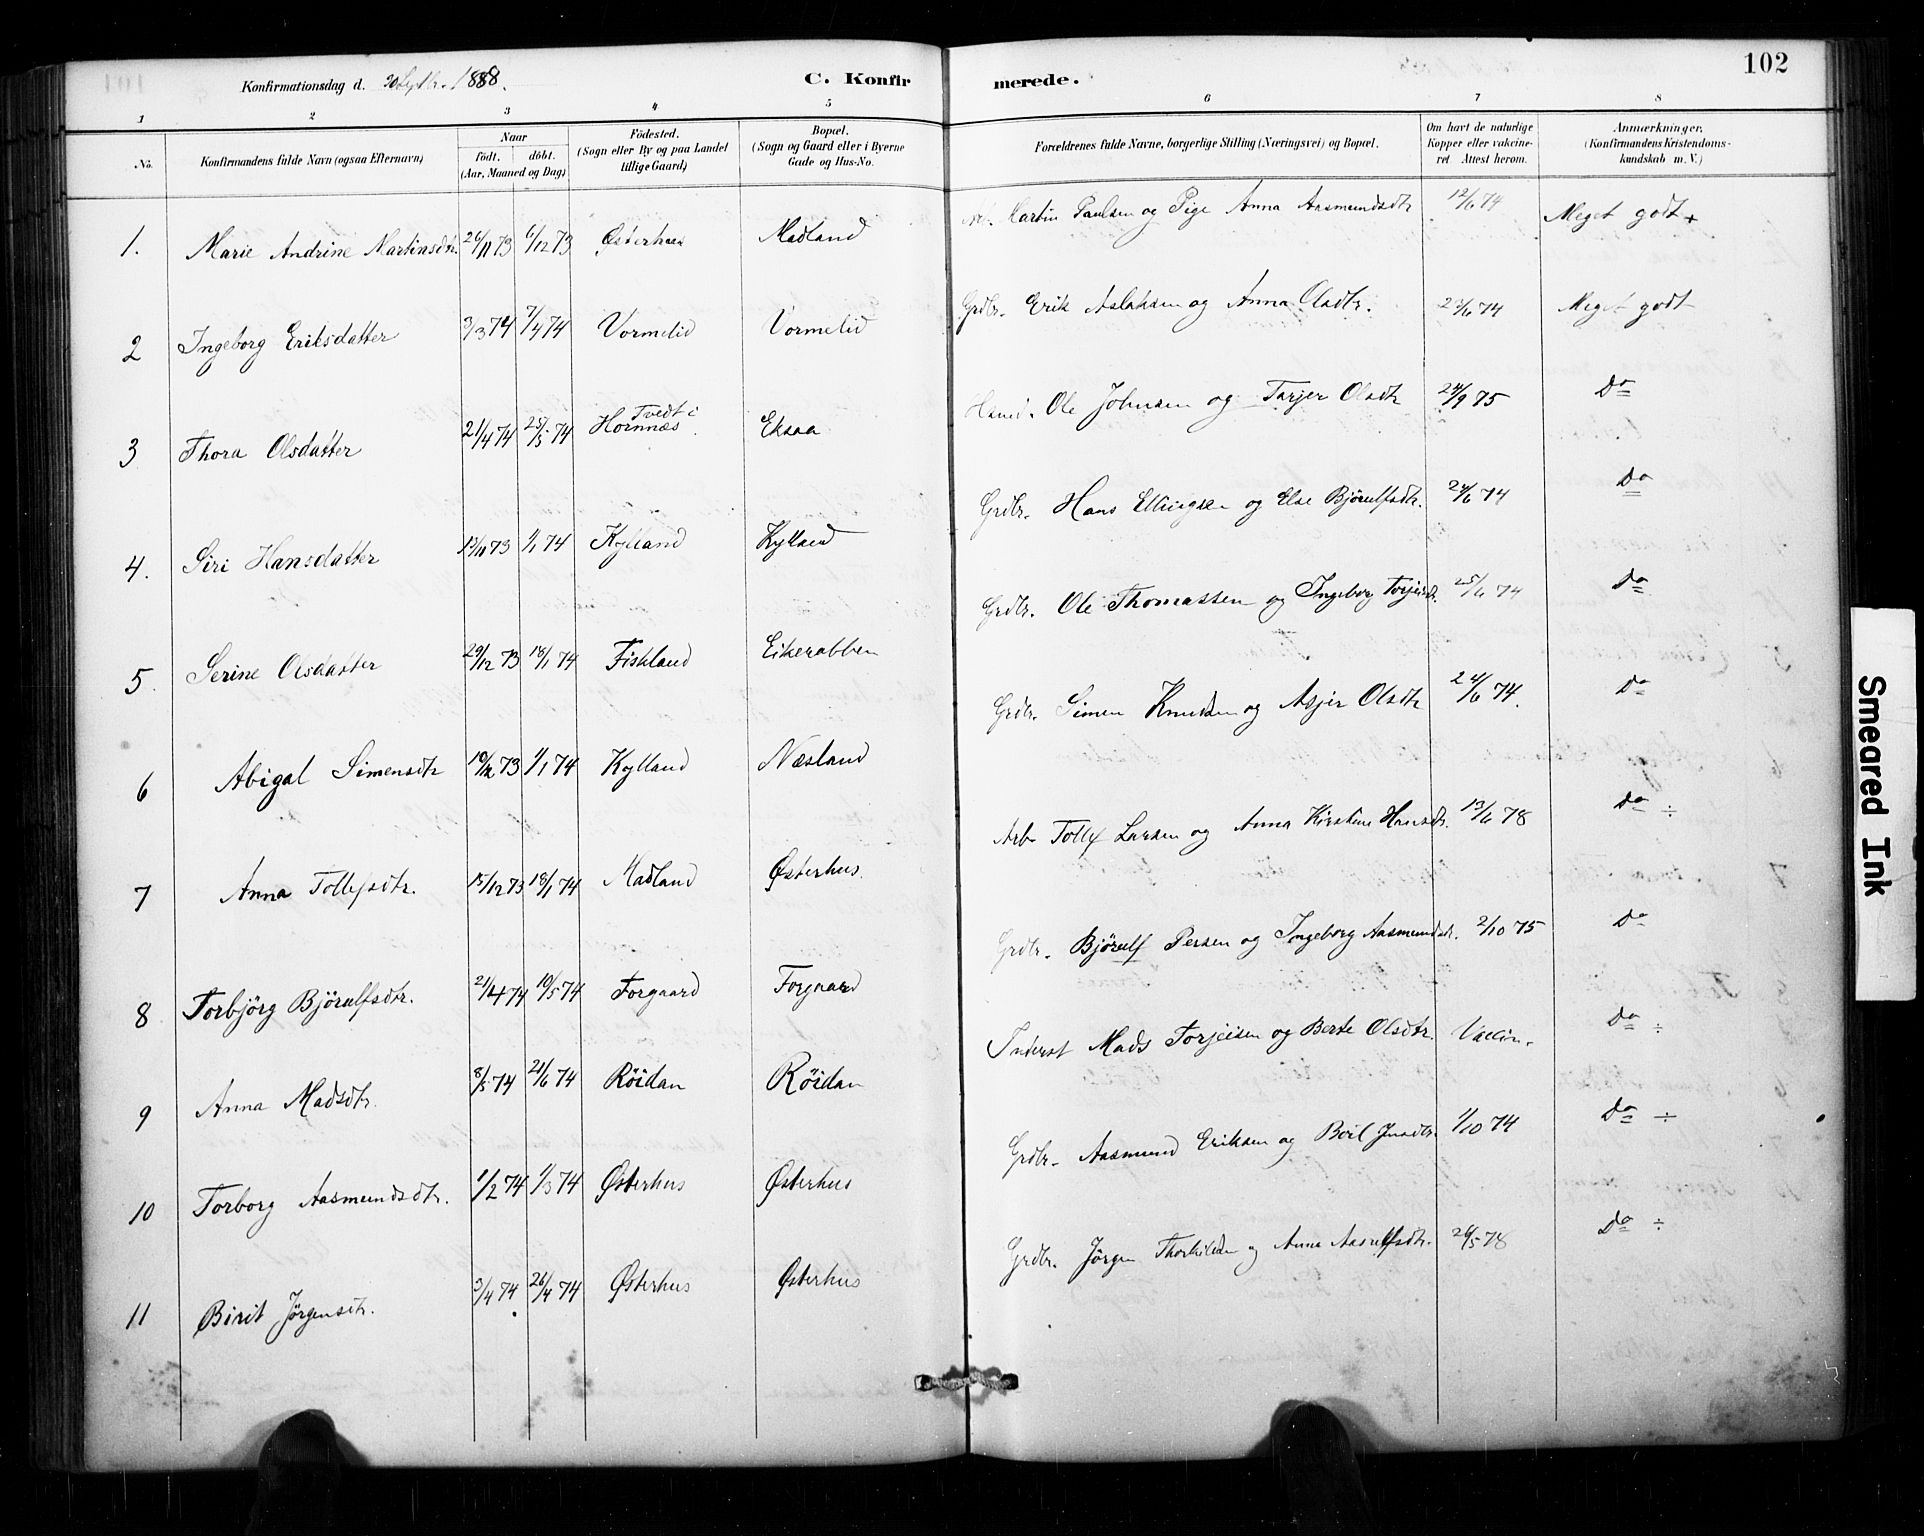 102
Konfirmationsdag d. 1888.
C. Konfirmerede.
1 2 3 4 5 6 7 8
No. Konfirmandens fulde Navn (ogsaa Efternavn) Naar födt. döbt. (Aar, Maaned og Dag) Födested. (Sogn eller By og paa Landet tillige Gaard) Bopæl. (Sogn og Gaard eller i Byerne Gade og Hus-No. Forældrenes fulde Navne, borgerlige Stilling (Næringsvei) og Bopæl. Om havt de naturlige Kopper eller vakcineret. Attest herom. Anmærkninger. (Konfirmandens Kristendomskundskab m. V.)
1. Marie Andrine Martinsdtr. 26/11 73 6/12 73 Østerhus Madland Martin Paulsen og Pige Anna Aasmundsdtr 12/6 74 Meget godt +
2 Ingeborg Eriksdatter 3/3 74 7/4 74 Vormelid Vormelid Grdbr. Erik Aslaksen og Anna Olsdtr. 23/6 74 Meget godt
3 Thora Olsdatter 21/4 74 25/5 74 Tvedt i Hornnæs. Eksaa Ole Johnsen og Tarjer Olsdtr 24/9 75 Do
4. Siri Hansdatter 13/11 73 1/1 74 Kylland Kylland Grdbr. Hans Ellingsen og Else Bjørulfsdtr. 24/6 74 Do
5. Serine Olsdatter 29/12 73 18/1 74 Fiskland Eikerabben Grdbr. Ole Thomassen og Ingeborg Torjeisdtr. 25/6 74 Do
6 Abigal Simensdtr 19/12 73 1/1 74 Kylland Næsland Grdbr. Simen Knudsen og Asjer Olsdtr 24/6 74. Do
7 Anna Tollefsdtr. 15/12 73 18/1 74 Madland Østerhus. Arb. Tollef Larsen og Anna Kirstine Hansdtr. 13/6 78 Do ÷
8 Torbjörg Bjørulfsdtr. 21/4 74 10/5 74 Forgaard Forgaard Grdbr. Bjørulf Persen og Ingeborg Aasmundsdtr. 2/10 75 Do
9 Anna Madsdtr. 8/5 74 21/6 74 Röidan Röidan Inderst Mads Torjeisen og Berte Olsdtr. Vaccin. Do ÷
10 Torborg Aasmundsdtr. 1/2 74 1/3 74 Østerhus Østerhus Grdbr. Aasmund Eriksen og Boil Jensdtr. 1/10 74 Do ÷
11 Birit Jørgensdtr. 3/4 74 26/4 74 Østerhus Østerhus Grdbr. Jørgen Thorkildsen og Anna Aasulfsdtr. 26/5 78 Do ÷
Smeared Ink